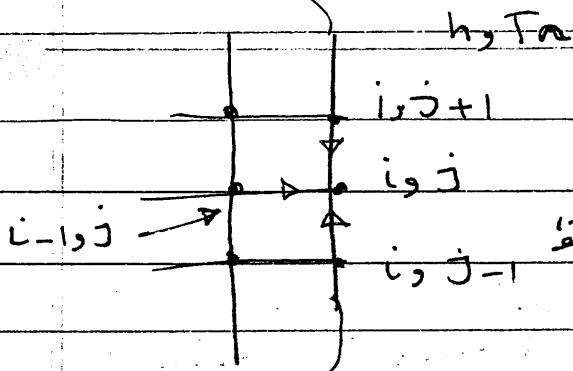 h, T∞
i, j+1
i, j
i-1, j
i, j-1